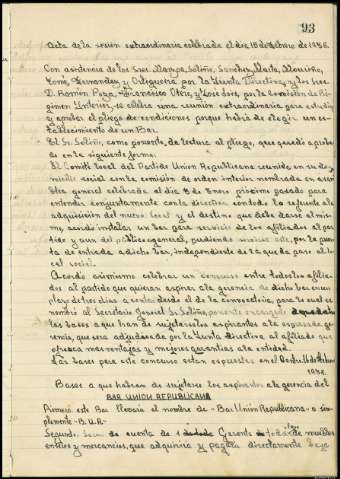 93
Acta de la sesión extraordinaria celebrada el dia 10 de Febrero de 1936.
Con asistencia de los Sres. Sánchez,
Fernández y Ortigueira por la Junta Directiva, y los Sres.
D. Ramón Francisco Otero, y José por la Comisión de Ré-
gimen Interior, se celebra una reunión extraordinaria para estudiar
y aprobar el pliego de condiciones porque habrá de regir un es-
tablecimiento de un Bar.
El Sr. Soliño, como ponente, da lectura al pliego, que quedó aproba-
do en la siguiente forma:
El Comité local del Partido Unión Republicana reunido en su do-
micilio social con la comisión de orden interior nombrada en asam-
blea general celebrada el dia de Enero próximo pasado para
entender conjuntamente con la directiva en todo lo referente a la
adquisición del nuevo local y el destino que debe darse al mis-
mo, acordó instalar un bar para servicio de los afiliados al par-
tido y aun del público general, pudiendo por la puer-
ta de entrada a dicho bar, independiente de la que da paso al lo-
cal social.
Acordó asimismo celebrar un concurso entre todos los afilia-
dos al partido que quieran aspirar a la gerencia de dicho bar, en un
plazo de tres dias a contar desde el de la convocatoria, para lo cual se
nombró al Secretario General Sr. Soliño, ponente encargado de
las bases a que han de sujetarse los aspirantes a la expresada ge-
rencia, que será adjudicada por la Junta Directiva al afiliado que
ofrezca mas ventajas y mejores garantias a la entidad.
Las bases para este concurso están expuestas en el
1936.
Bases a que habrán de sujetarse los aspirantes a la gerencia del
BAR UNION REPUBLICANA
Primera este Bar llevará el nombre de - Bar Unión Republicana - o sim-
plemente - B.U.R. -
Segunda de cuenta de Gerente muebles
enseres y mercancias, que adquirirá y pagará directamente